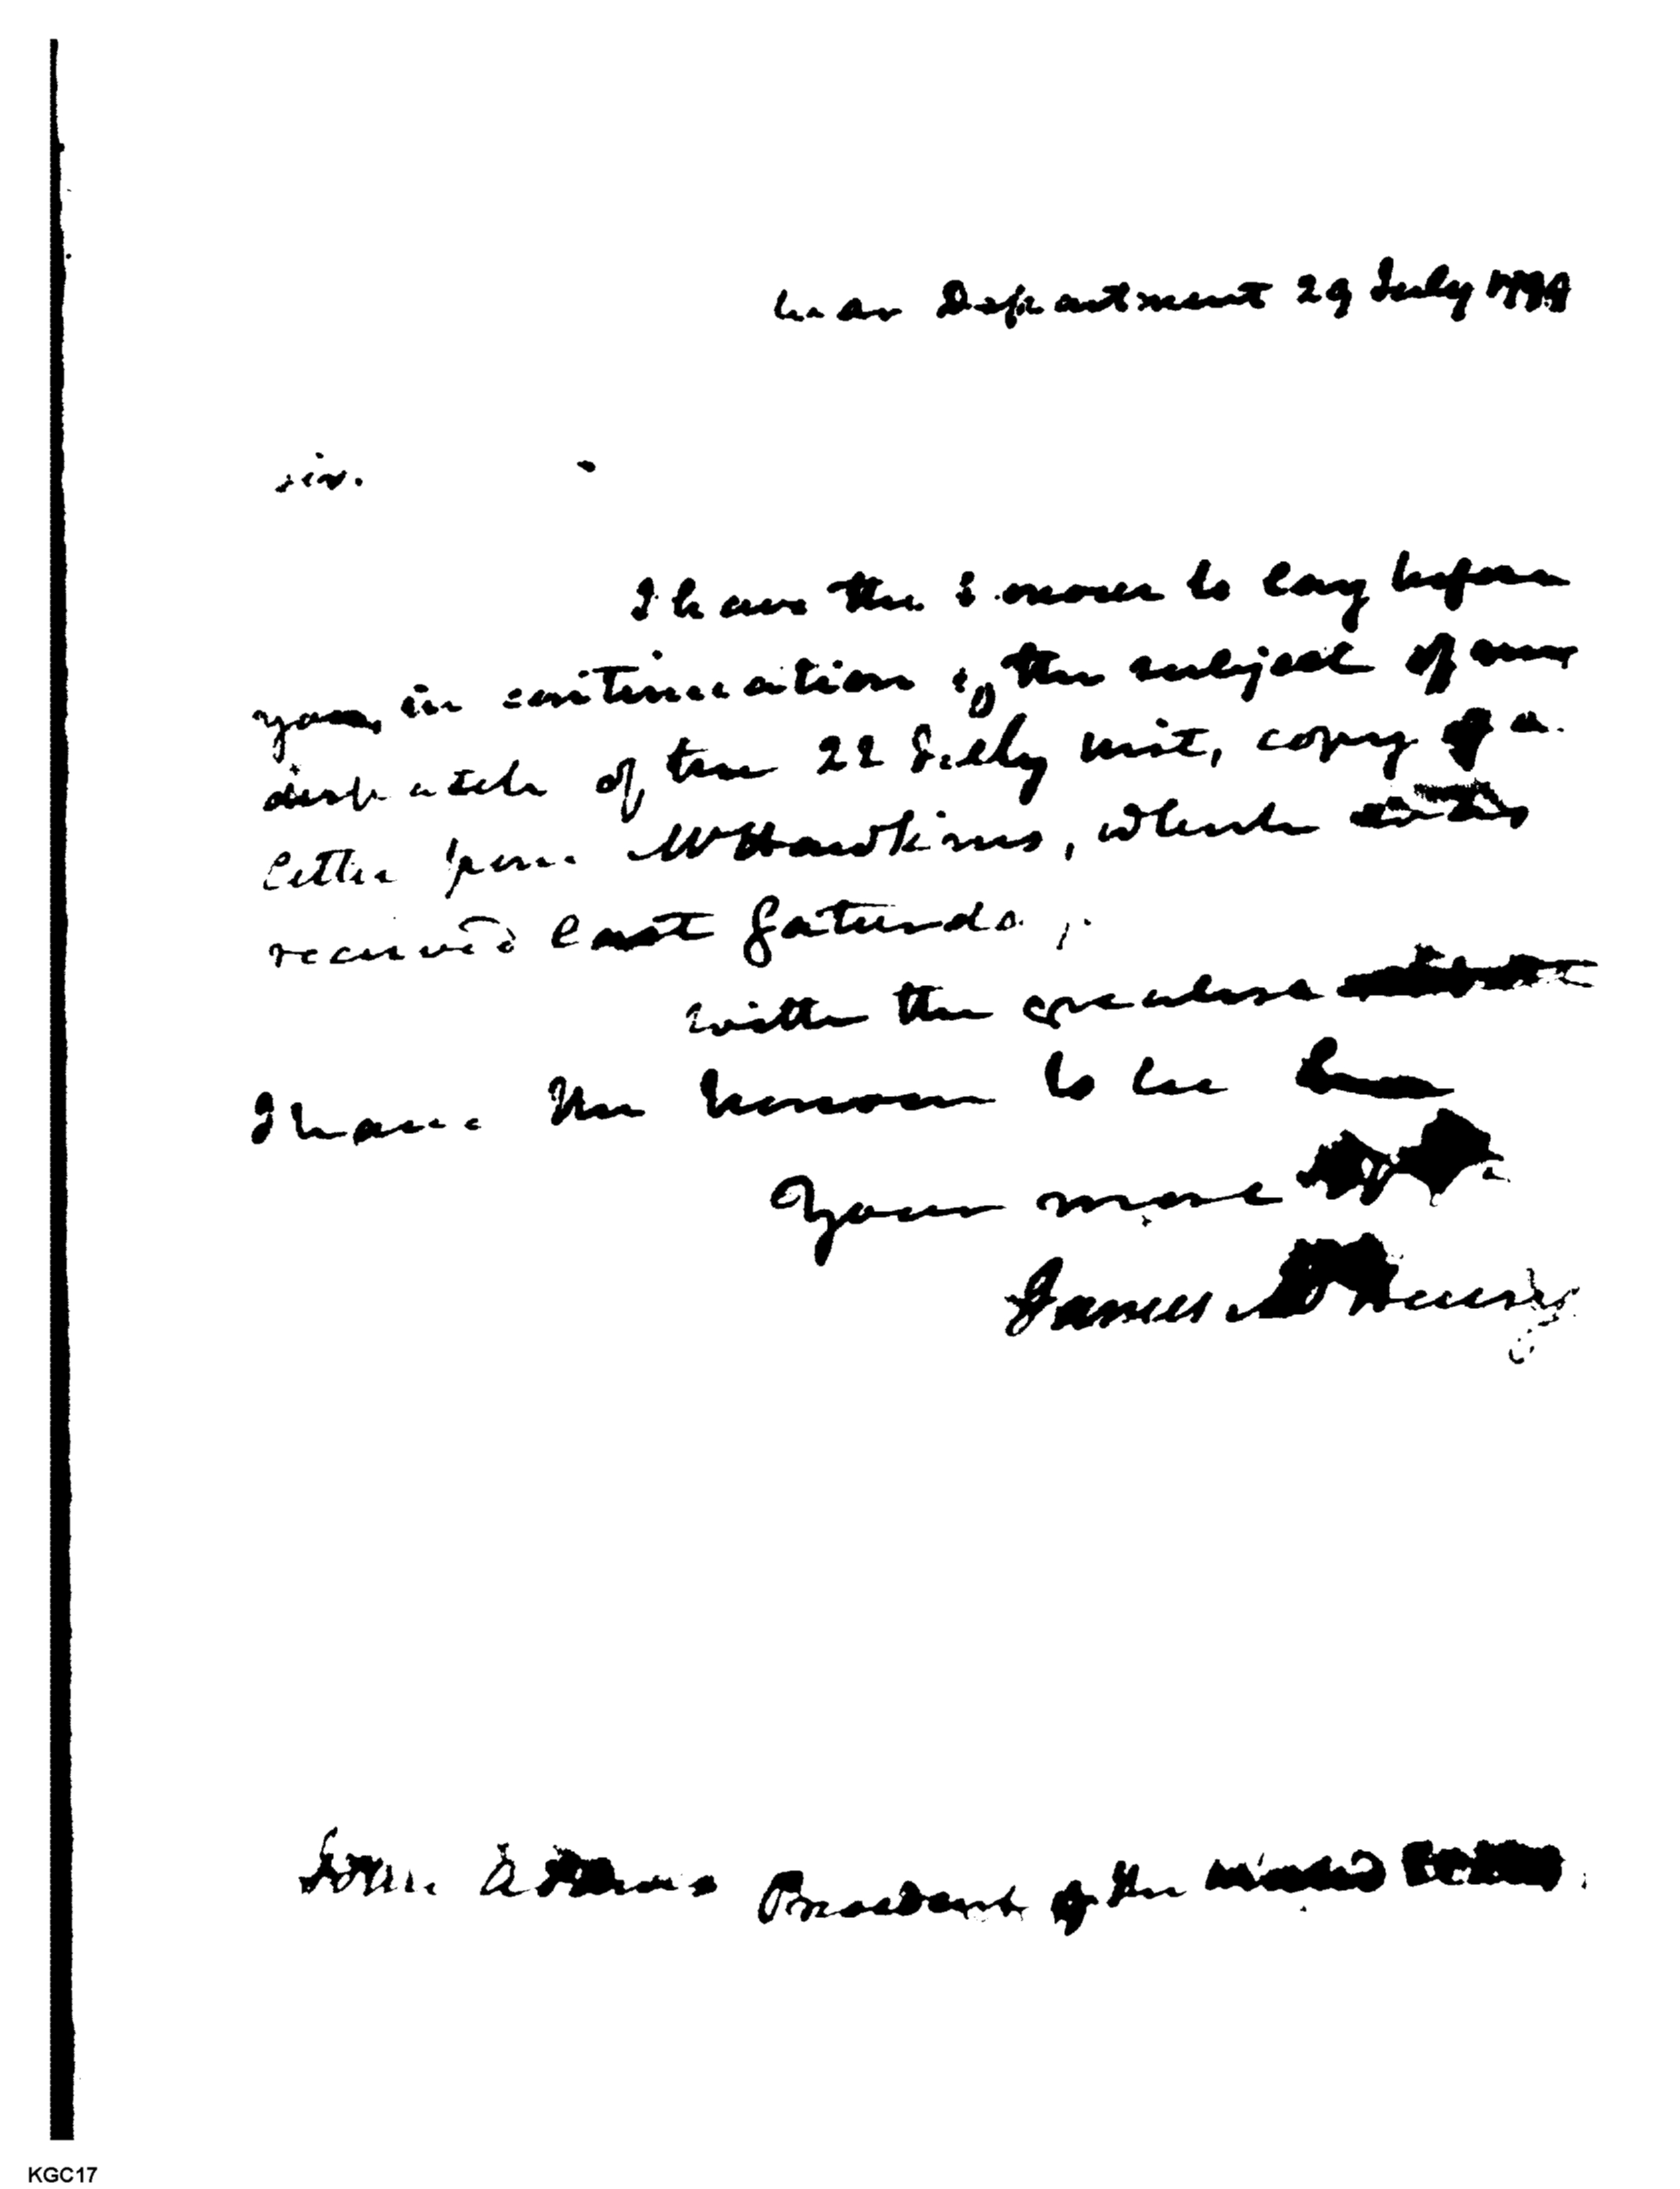 War Department 29 July 1799
Sir.
I have the honour to lay before
you, in continuation of the subject of my
dispatch of the 22 July inst, copy of a
letter from Mr Hawkins, which
received last Saturday.
with the greatest
I have the honour to be
Your most
James McHenry
John Adams President of the United States.
KGC17